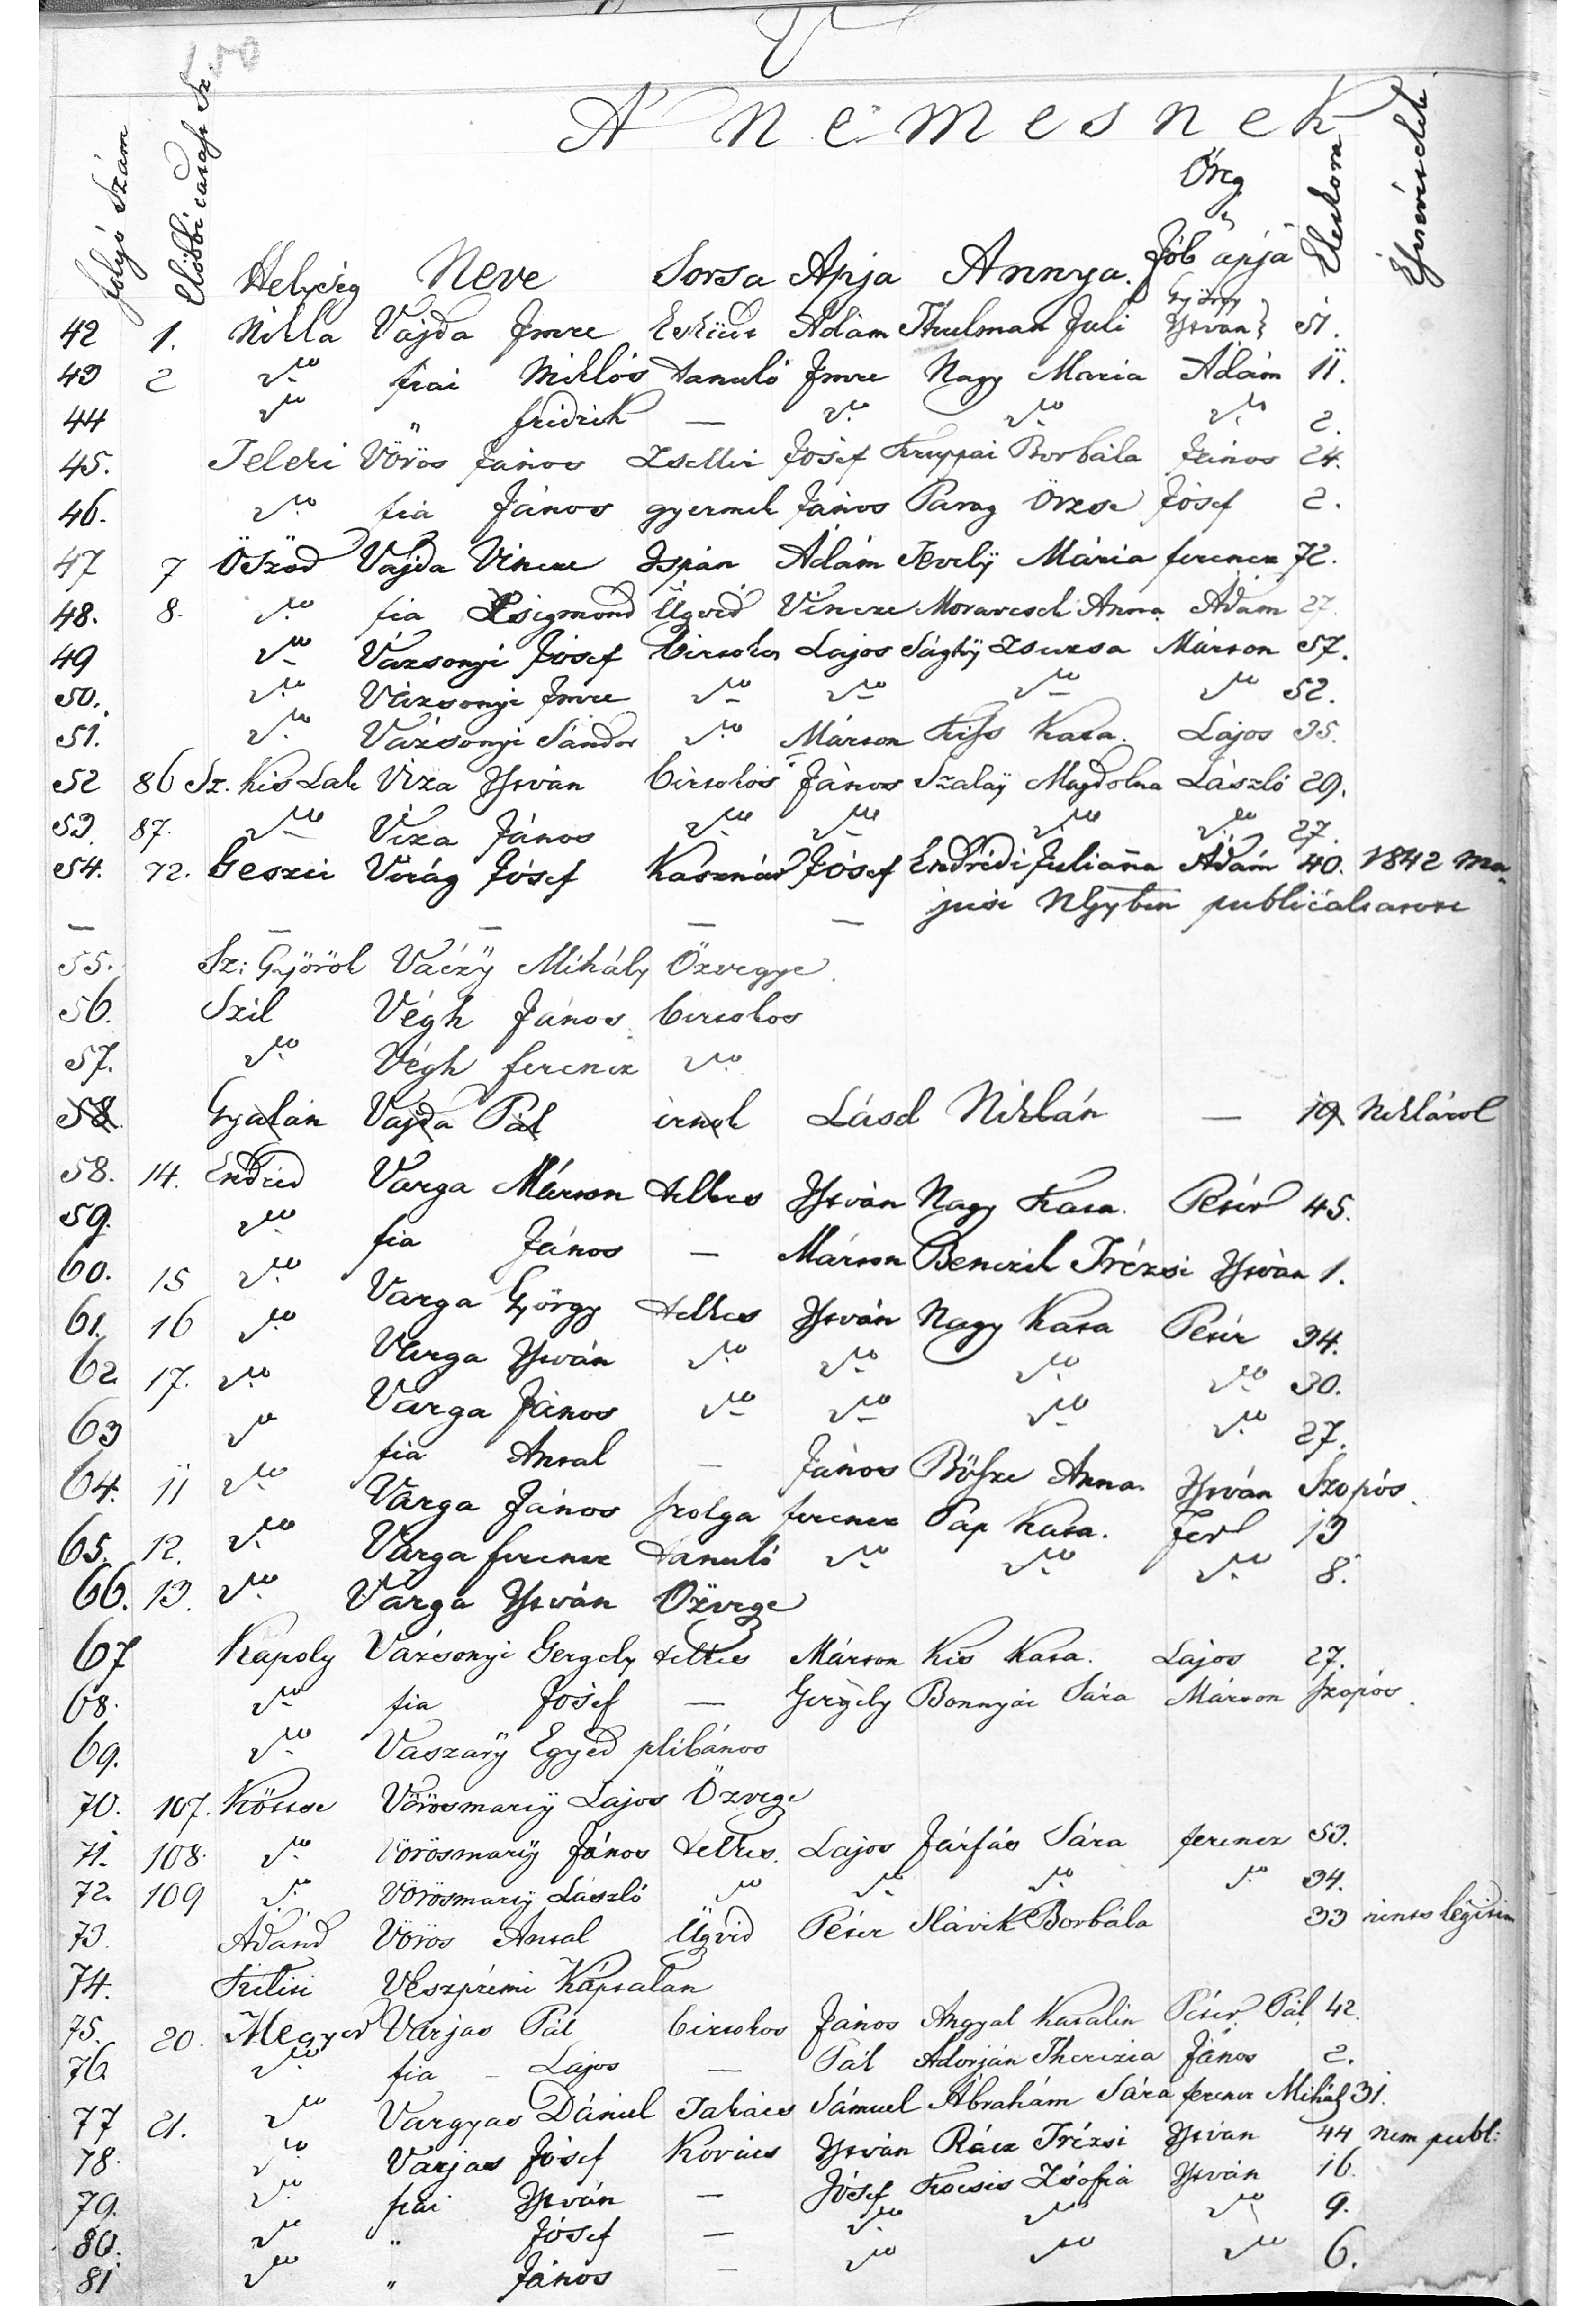 V
A N e m e s n e k
folyó Szám
Előbbi
Helység Neve Sorsa Apja Annya. Öreg Jób apja Életkora Észrevételek
György
42 1. Nikla Vajda Imre Esküdt Adám Thulman Juli István 51.
43 2 dtto fiai Miklós tanuló Imre Nagy Maria Ádám 11.
44 dtto " fridrik — dtto dtto dtto 2.
45. Teleki Vörös János Zsellér Jósef Kruppai Borbála János 24.
46. dtto fia János gyermek János Parag Örzse Jósef 2.
47 7 Öszöd Vajda Vincze Ispán Ádám Mária ferencz 72.
48. 8. dtto fia Zsigmond Ügved Vincze Moravcsek Anna Adám 27.
49 dtto Vázsonyi Jósef birtokos Lajos Sághÿ Zsuzsa Márton 57.
50. dtto Vázsonyi Imre dtto dtto dtto dtto 52.
51. dtto Vázsonyi Sándor dtto Márton Kiss Kata. Lajos 35.
52 86 Sz. Kis Lak Viza István birtokos János Szalaÿ Magdolna László 29.
53. 87. dtto Viza János dtto dtto dtto dtto 27.
54. 72. Geszti Virág Jósef Kasznár Jósef Endrédi Julianna Adám 40. 1842 Ma-
jusi NGyben publicáltatott
— — — — —
55. Sz: Györök Váczÿ Mihály Özvegye.
56. Szil Végh János birtokos
57. dtto Végh ferencz dtto
58. Gyalán Vajda Pál írnok Lásd Niklán — 19 Niklárol
58. 14. Endréd Varga Márton telkes István Nagy Kata. Péter 45.
59. dtto fia János — Márton Benczik Trézsi István 1.
60. 15 dtto Varga György telkes István Nagy Kata Péter 34.
61. 16 dtto Varga István dtto dtto dtto dtto 30.
62 17. dtto Varga János dtto dtto dtto dtto 27.
63 dtto fia Antal — János Bősze Anna. István Szopós.
64. 11 dtto Varga János szolga ferencz Pap Kata. Fer 13
65. 12. dtto Varga ferencz tanuló dtto dtto dtto 8.
66. 13. dtto Varga István Özvegye
67 Kapoly Vázsonyi Gergely telkes Márton Kis Kata. Lajos 27.
68. dtto fia Jósef — Gergely Bonnyai Sára Márton szopós.
69. dtto Vaszarÿ Egyed plibános
70. 107. Köttse Vörösmartÿ Lajos Özvegye
71. 108. dtto Vörösmartÿ János telkes. Lajos Járfás Sára ferencz 53.
72. 109 dtto Vörösmartÿ László dtto dtto dtto dtto 34.
73. Adánd Vörös Antal Ügvéd Péter Slávik Borbála 33 nints légitim
74. Veszprémi Káptalan
75. 20. Megyer Varjas Pál birtokos János Angyal Katalin Péter Pál 42.
76. dtto fia — Lajos — Pál Adorján Therézia János 2.
77 21. dtto Vargyas Dániel Takács Sámuel Ábrahám Sára ferencz Mihály 31.
78. dtto Varjas Jósef Kovács István Rácz Trézsi István 44 nem publ:
79. dtto fiai István — Jósef Kocsis Zsófia István 16.
80. dtto " Jósef — dtto dtto dtto 9.
81 dtto " János — dtto dtto dtto 6.